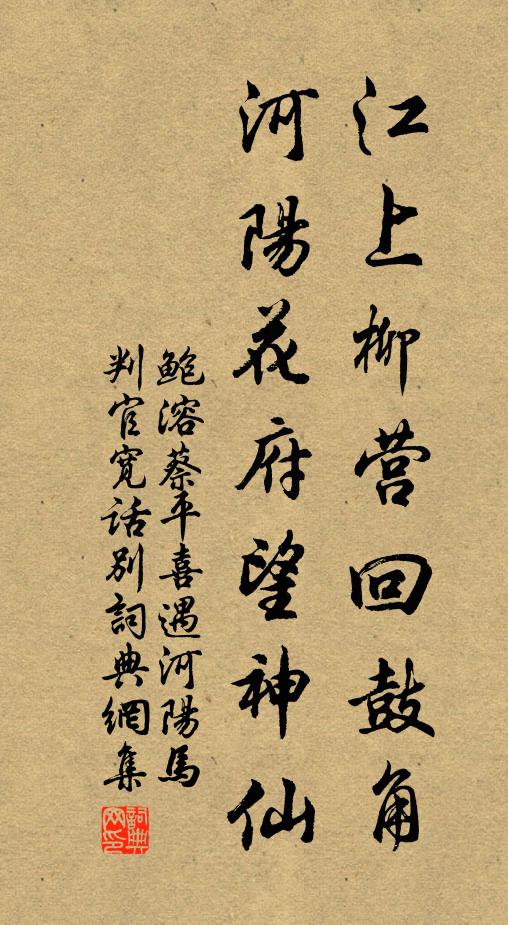 江上柳营回鼓角
河陽花府望神仙
鲍溶蔡平喜遇河陽馬
判官寛话别詞典網集
詞典
网印